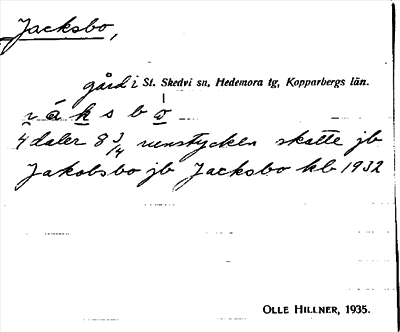 Jacksbo,
gård i St. Skedvi sn, Hedemora tg, Kopparbergs län.
k s b
4 daler 8 3/4 runstycken skatte jb
Jakobsbo jb Jacksbo kb 1932
OLLE HILLNER, 1935.